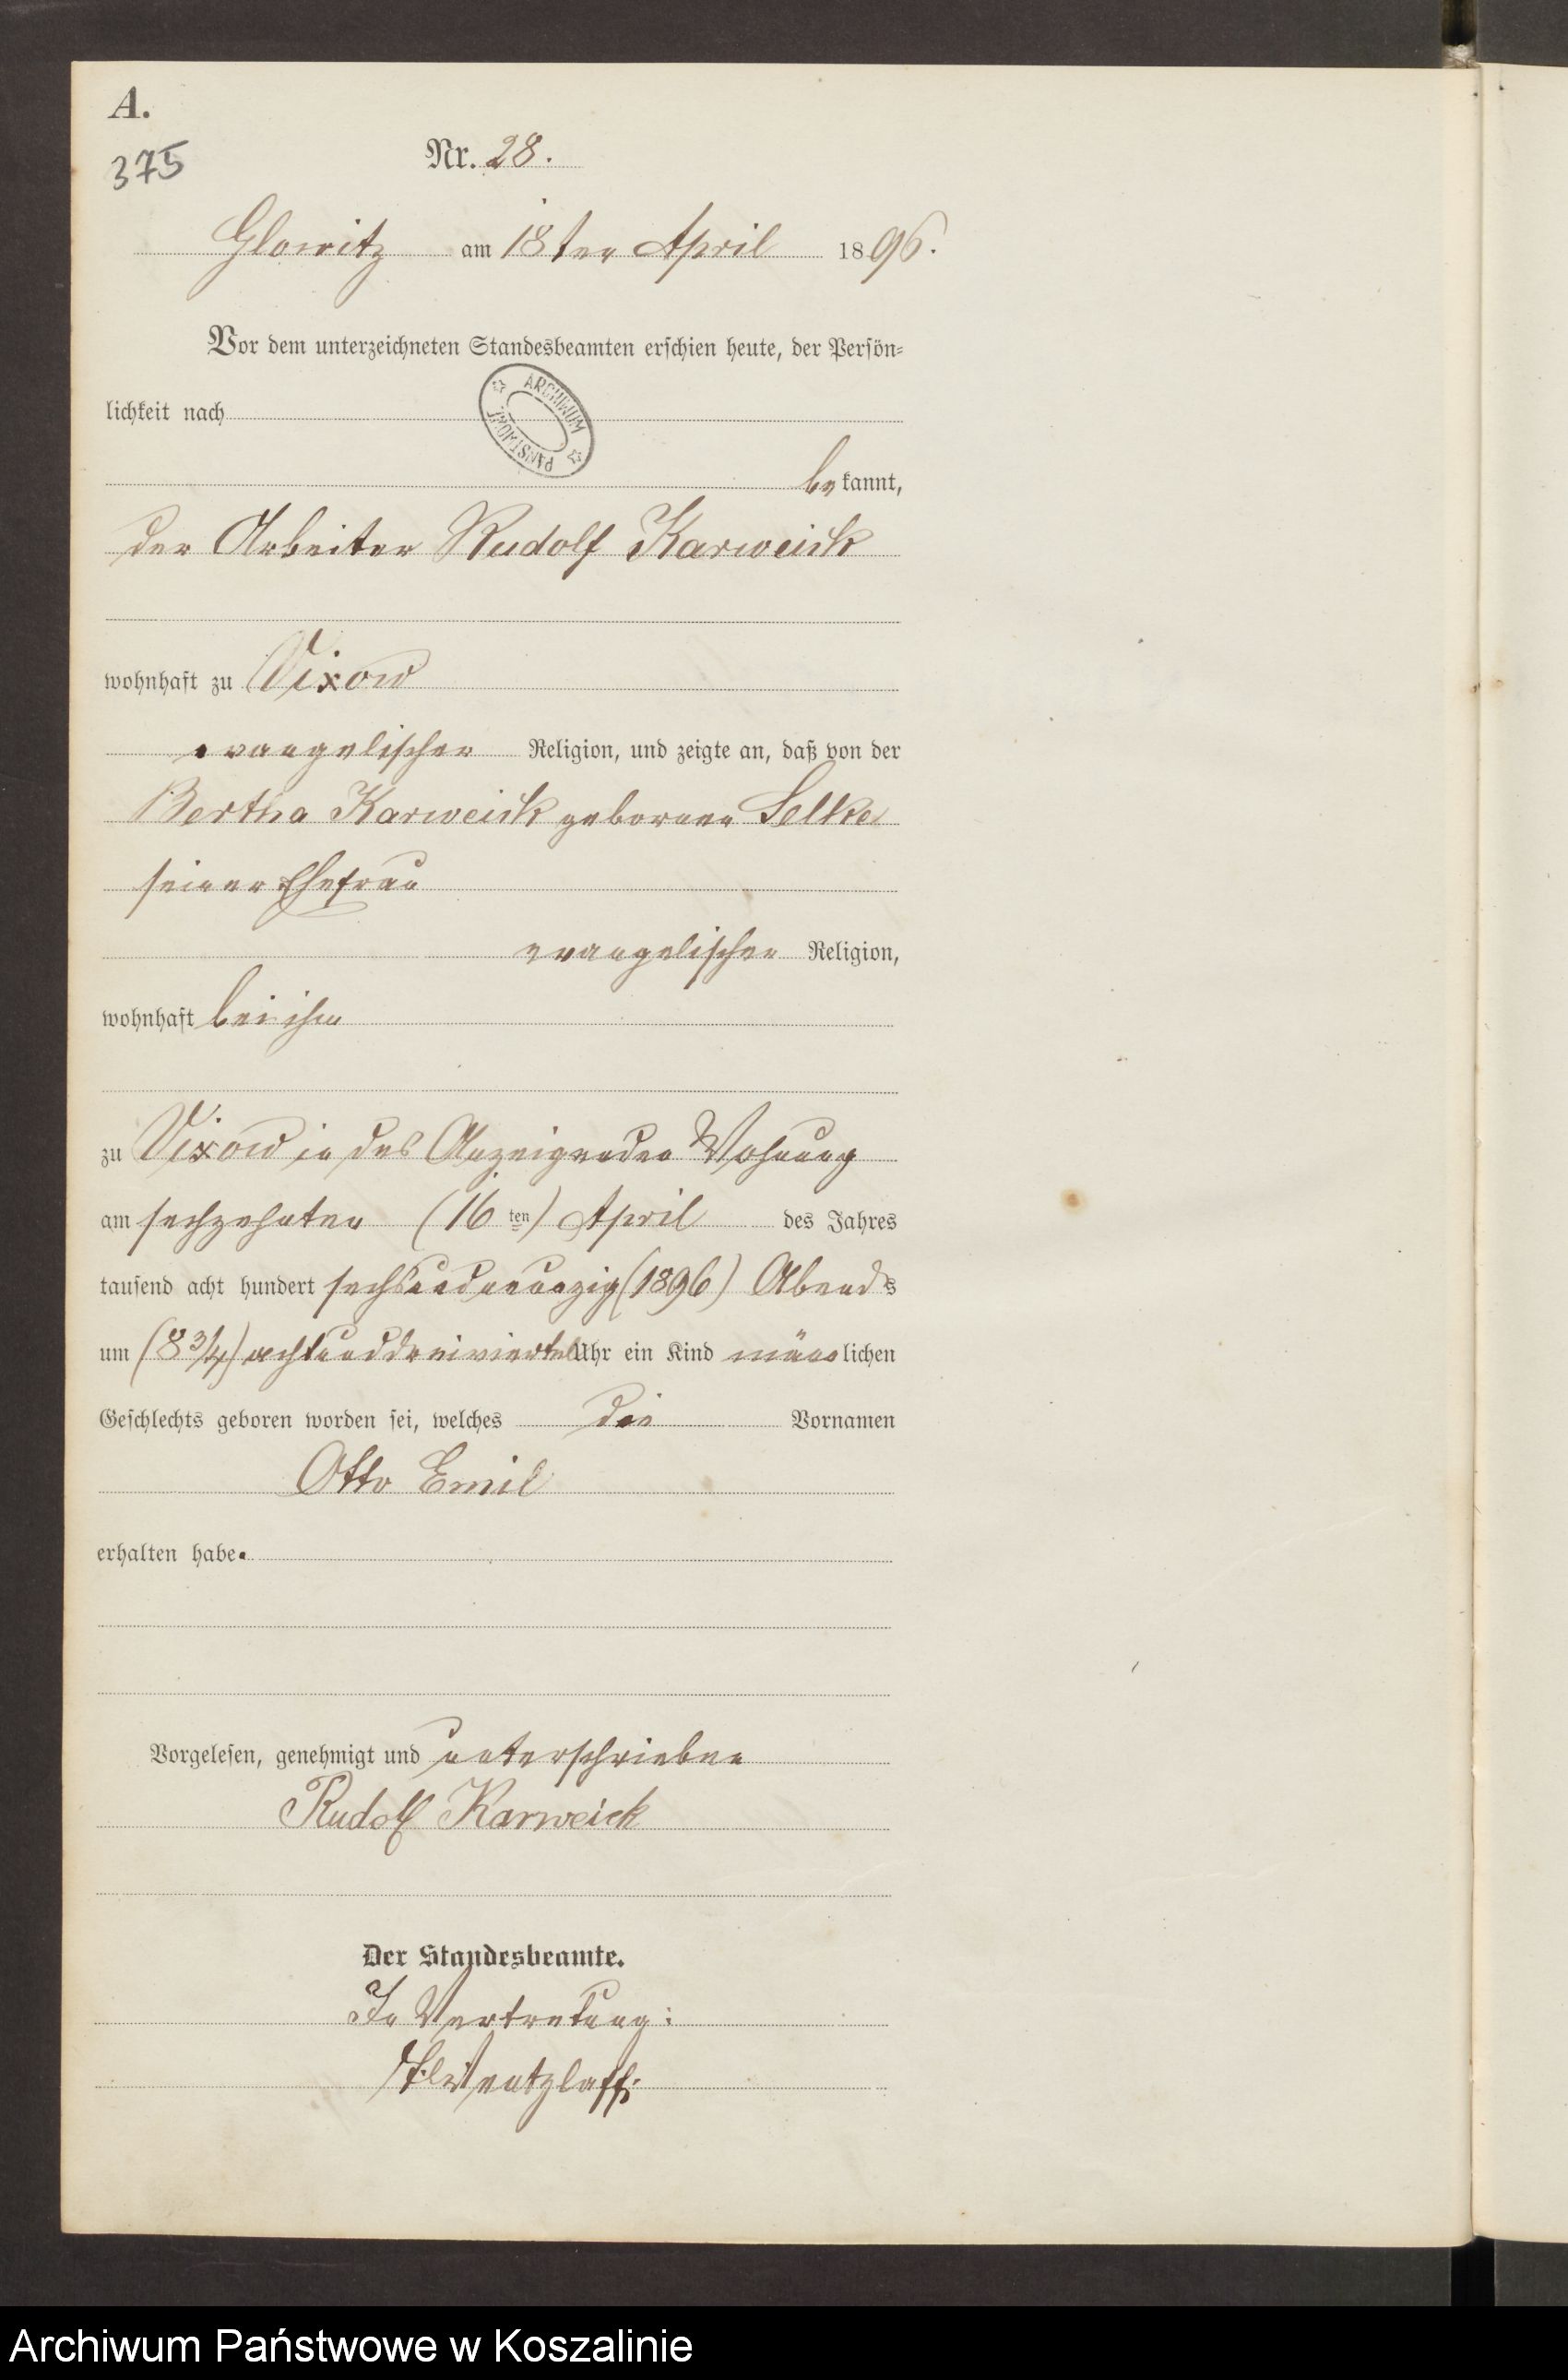 A.
375
Nr. 28.
Glowitz am 18ten April 1896.
Vor dem unterzeichneten Standesbeamten erschien heute, der Persön=
lichkeit nach
ARCHIWUM PAŃSTWOWE
bekannt,
der Arbeiter Rudolf Karweick
wohnhaft zu Vixow
evangelischer Religion, und zeigte an, daß von der
Bertha Karweick geborenen Selke
seiner Ehefrau
evangelischer Religion,
wohnhaft bei ihm
zu Vixow in des Anzeigenden Wohnung
am sechzehnten (16ten) April des Jahres
tausend acht hundert sechsundneunzig (1896) Abends
um (8 3/4) achtunddreiviertel Uhr ein Kind männlichen
Geschlechts geboren worden sei, welches die Vornamen
Otto Emil
erhalten habe.
Vorgelesen, genehmigt und unterschrieben
Rudolf Karweick
Der Standesbeamte.
In Vertretung:
Wentzlaff.
Archiwum Państwowe w Koszalinie